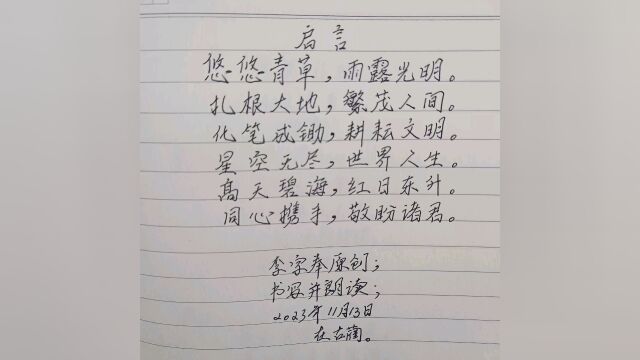 启言
悠悠青草，雨露光明。
扎根大地，繁茂人间。
化笔成锄，耕耘文明。
星空无尽，世界人生。
高天碧海，红日东升。
同心携手，敬盼诸君。
李字奉原创；
书写并朗读；
2023年11月13日
在古蔺。